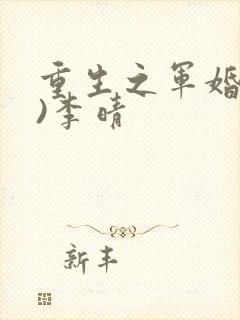 重生之军婚
)李晴
新丰